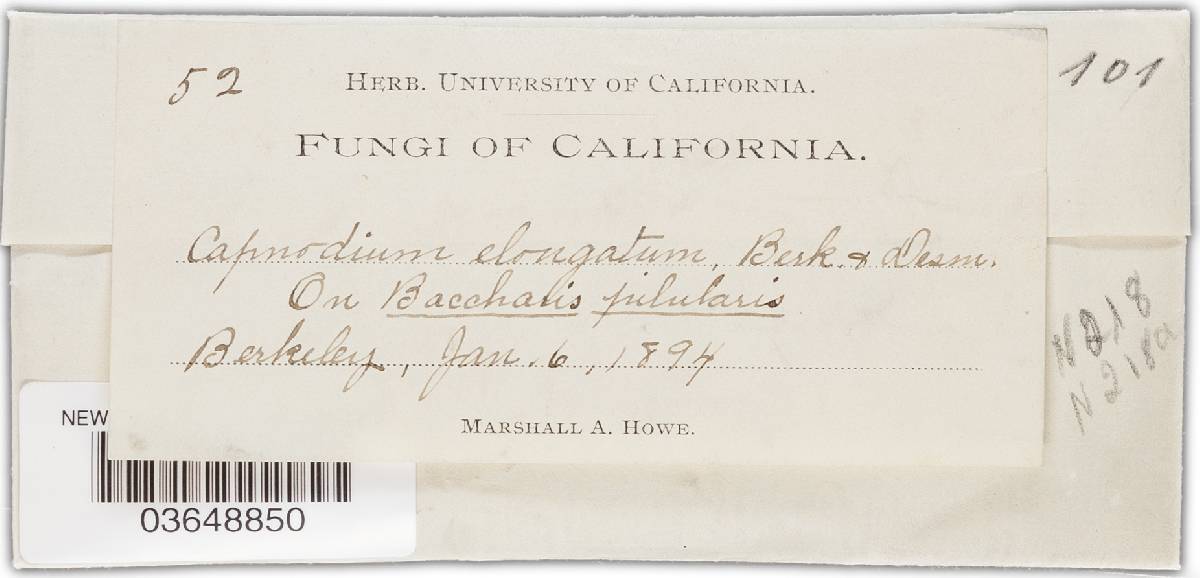 52
HERB. UNIVERSITY OF CALIFORNIA.
101
FUNGI OF CALIFORNIA.
Capnodium elongatum, Berk. & Desm.
On Baccharis pilularis
Berkeley, Jan. 6, 1894
N218
N218a
MARSHALL A. HOWE.
NEW
03648850